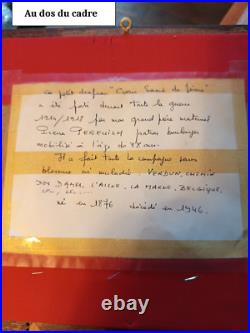 Au dos du cadre
Ce petit drapeau "Coeur Sacré de Jésus"
a été porté durant toute la guerre
1914/1918 par mon grand père maternel
Pierre patron boulanger
mobilisé à l'âge de ans.
Il a fait toute la campagne sans
blessure ni maladie. VERDUN, CHEMIN
DES DAMES, L'AISNE, LA MARNE, BELGIQUE,
né en 1876 décédé en 1946.